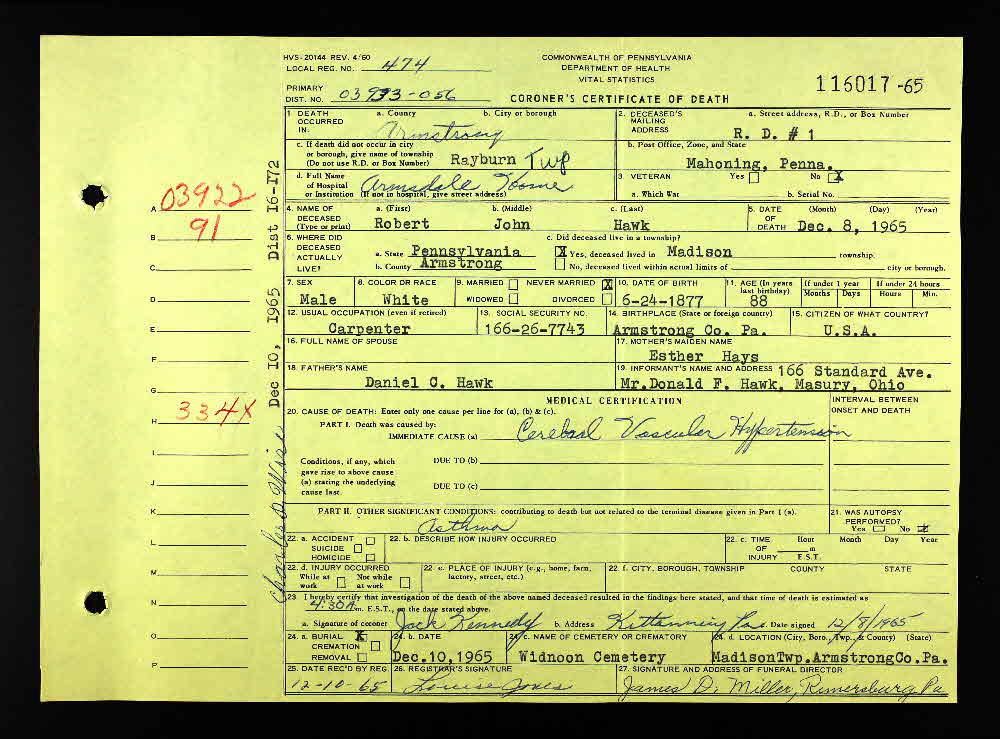 HVS-20144 REV. 4/60
LOCAL REG. NO. 474
COMMONWEALTH OF PENNSYLVANIA
DEPARTMENT OF HEALTH
VITAL STATISTICS
116017-65
PRIMARY
DIST. NO. 03933-056
CORONER'S CERTIFICATE OF DEATH
1. DEATH OCCURRED IN: a. County b. City or borough
Armstrong
2. DECEASED'S MAILING ADDRESS a. Street address, R.D., or Box Number
R. D. # 1
c. If death did not occur in city or borough, give name of township (Do not use R.D. or Box Number) Rayburn Twp
b. Post Office, Zone, and State
Mahoning, Penna.
d. Full Name of Hospital or Institution (If not in hospital, give street address) Armsdale Home
3. VETERAN Yes No X
a. Which War b. Serial No.
4. NAME OF DECEASED (Type or print) a. (First) b. (Middle) c. (Last)
Robert John Hawk
5. DATE OF DEATH (Month) (Day) (Year)
Dec. 8, 1965
6. WHERE DID DECEASED ACTUALLY LIVE? a. State Pennsylvania
b. County Armstrong
c. Did deceased live in a township?
X Yes, deceased lived in Madison township.
No, deceased lived within actual limits of city or borough.
7. SEX
Male
8. COLOR OR RACE
White
9. MARRIED NEVER MARRIED X
WIDOWED DIVORCED
10. DATE OF BIRTH
6-24-1877
11. AGE (In years last birthday)
88
If under 1 year
Months Days
If under 24 hours
Hours Min.
12. USUAL OCCUPATION (even if retired)
Carpenter
13. SOCIAL SECURITY NO.
166-26-7743
14. BIRTHPLACE (State or foreign country)
Armstrong Co. Pa.
15. CITIZEN OF WHAT COUNTRY?
U.S.A.
16. FULL NAME OF SPOUSE
17. MOTHER'S MAIDEN NAME
Esther Hays
18. FATHER'S NAME
Daniel C. Hawk
19. INFORMANT'S NAME AND ADDRESS 166 Standard Ave.
Mr.Donald F. Hawk, Masury, Ohio
MEDICAL CERTIFICATION
INTERVAL BETWEEN
ONSET AND DEATH
20. CAUSE OF DEATH: Enter only one cause per line for (a), (b) & (c).
PART I. Death was caused by:
IMMEDIATE CAUSE (a) Cerebral Vascular Hypertension
Conditions, if any, which gave rise to above cause (a) stating the underlying cause last.
DUE TO (b)
DUE TO (c)
PART II. OTHER SIGNIFICANT CONDITIONS: contributing to death but not related to the terminal disease given in Part I (a).
Asthma
21. WAS AUTOPSY PERFORMED?
Yes No X
22. a. ACCIDENT
SUICIDE
HOMICIDE
22. b. DESCRIBE HOW INJURY OCCURRED
22. c. TIME OF INJURY Hour Month Day Year
m E.S.T.
22. d. INJURY OCCURRED
While at work Not while at work
22. e. PLACE OF INJURY (e.g., home, farm, factory, street, etc.)
22. f. CITY, BOROUGH, TOWNSHIP COUNTY STATE
23. I hereby certify that investigation of the death of the above named deceased resulted in the findings here stated, and that time of death is estimated as
4:30A m. E.S.T., on the date stated above.
a. Signature of coroner Jack Kennedy b. Address Kittanning Pa. Date signed 12/8/1965
24. a. BURIAL X
CREMATION
REMOVAL
24. b. DATE
Dec.10,1965
24. c. NAME OF CEMETERY OR CREMATORY
Widnoon Cemetery
24. d. LOCATION (City, Boro., Twp., & County) (State)
MadisonTwp.ArmstrongCo.Pa.
25. DATE REC'D BY REG.
12-10-65
26. REGISTRAR'S SIGNATURE
Louise Jones
27. SIGNATURE AND ADDRESS OF FUNERAL DIRECTOR
James D. Miller, Rimersburg Pa
A 03922
B 91
C
D
E
F
G
H 334X
I
J
K
L
M
N
O
P
Charles D. Wise Dec 10, 1965 Dist 16-172